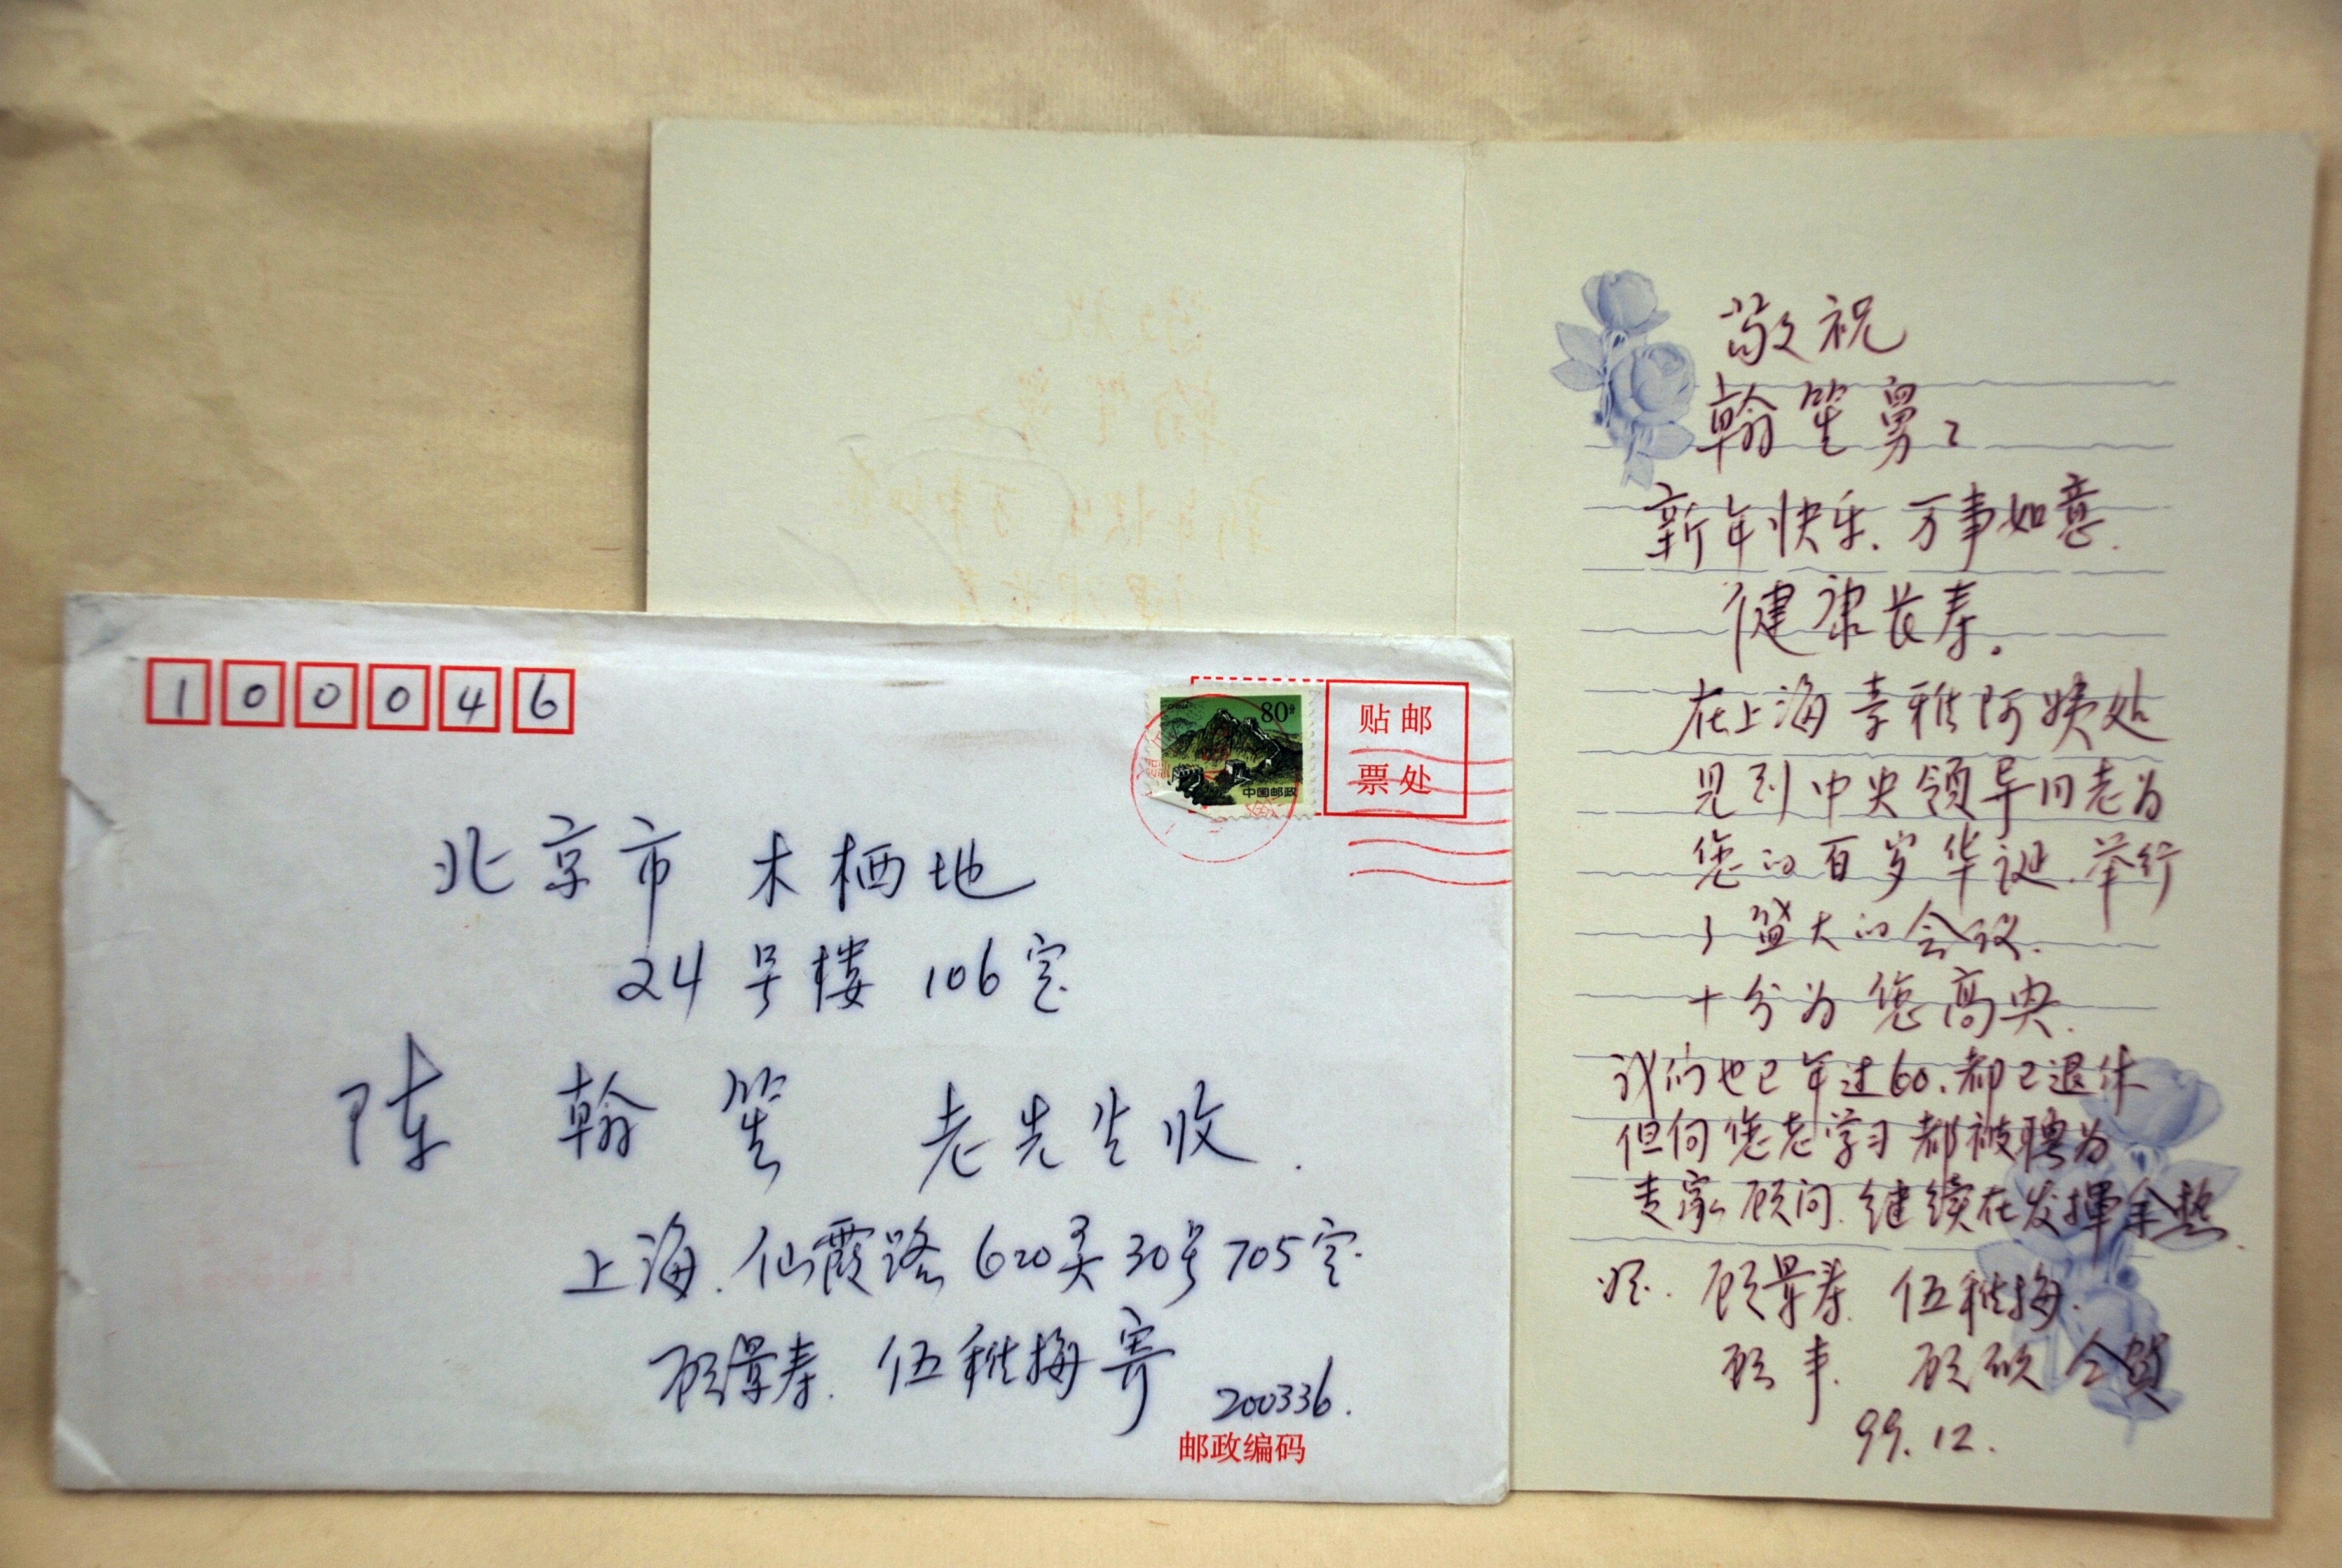 100046
80分
中国邮政
贴邮
票处
北京市 木栖地
24号楼 106室
陈 翰笙 老先生收.
上海.仙霞路620弄30号705室.
顾景寿.伍稚梅寄
200336.
邮政编码
敬祝
翰笙舅:
新年快乐.万事如意.
健康长寿。
在上海 雅阿姨处
见到中央领导同志为
您的百岁华诞.举行
了盛大的会议.
十分为您高兴.
我们也已年过60.都已退休
但向您老学习都被聘为
专家顾问.继续在发挥余热.
顾景寿.伍稚梅.
顾丰. 顾硕 仝贺
99.12.